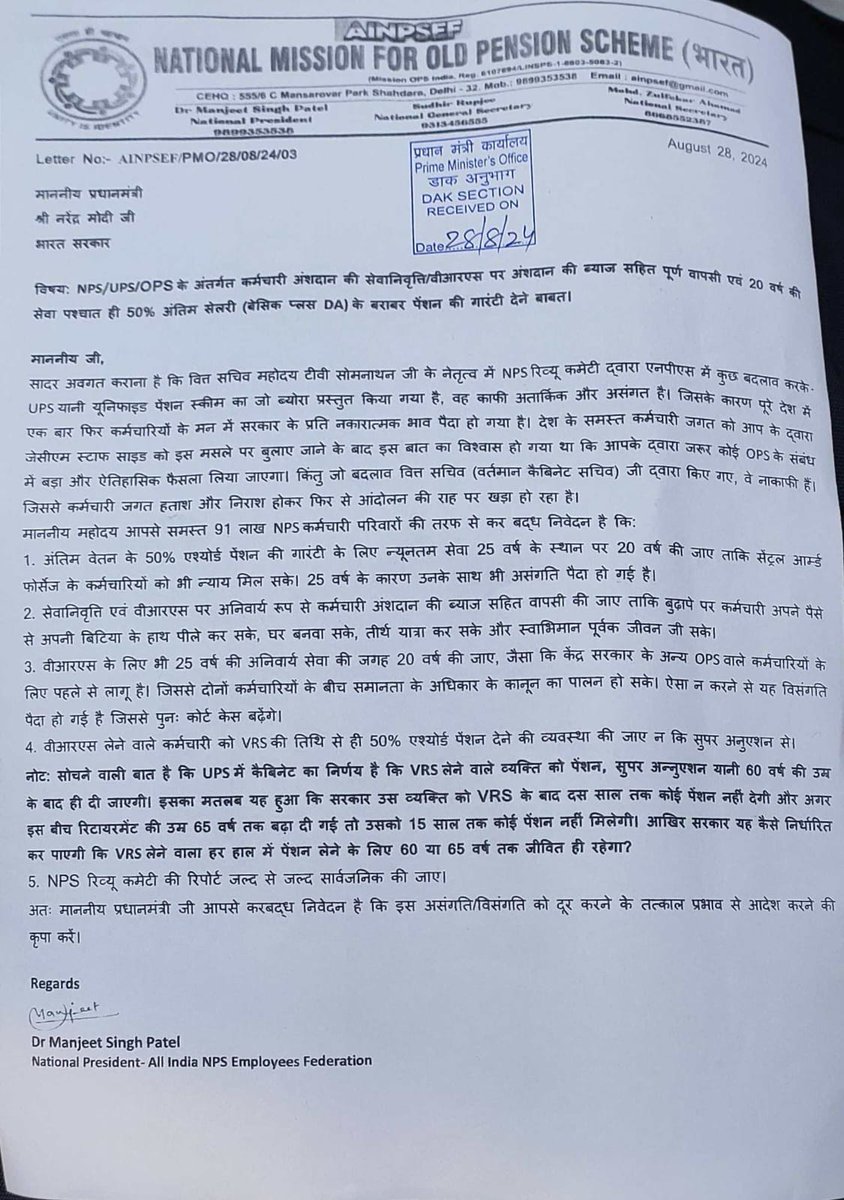 AINPSEF
NATIONAL MISSION FOR OLD PENSION SCHEME (भारत)
(Mission OPS India, Reg. 6107694/LINSPS-1-8803-5083-2)
CEHQ : 555/6 C Mansarovar Park Shahdara, Delhi - 32. Mob.: 9899353538 Email : ainpsef@gmail.com
Dr Manjeet Singh Patel
National President
9899353538
Sudhir Rupjee
National General Secretary
9313456555
Mohd. Zulfekar Ahamad
National Secretary
8068552387
UNITY IS IDENTITY
Letter No:- AINPSEF/PMO/28/08/24/03
August 28, 2024
प्रधान मंत्री कार्यालय
Prime Minister's Office
डाक अनुभाग
DAK SECTION
RECEIVED ON
Date 28/8/24
माननीय प्रधानमंत्री
श्री नरेंद्र मोदी जी
भारत सरकार
विषय: NPS/UPS/OPS के अंतर्गत कर्मचारी अंशदान की सेवानिवृत्ति/वीआरएस पर अंशदान की ब्याज सहित पूर्ण वापसी एवं 20 वर्ष की
सेवा पश्चात ही 50% अंतिम सेलरी (बेसिक प्लस DA) के बराबर पेंशन की गारंटी देने बाबत।
माननीय जी,
सादर अवगत कराना है कि वित्त सचिव महोदय टीवी सोमनाथन जी के नेतृत्व में NPS रिव्यू कमेटी द्वारा एनपीएस में कुछ बदलाव करके-
UPS यानी यूनिफाइड पेंशन स्कीम का जो ब्योरा प्रस्तुत किया गया है, वह काफी अतार्किक और असंगत है। जिसके कारण पूरे देश में
एक बार फिर कर्मचारियों के मन में सरकार के प्रति नकारात्मक भाव पैदा हो गया है। देश के समस्त कर्मचारी जगत को आप के द्वारा
जेसीएम स्टाफ साइड को इस मसले पर बुलाए जाने के बाद इस बात का विश्वास हो गया था कि आपके द्वारा जरूर कोई OPS के संबंध
में बड़ा और ऐतिहासिक फैसला लिया जाएगा। किंतु जो बदलाव वित्त सचिव (वर्तमान कैबिनेट सचिव) जी द्वारा किए गए, वे नाकाफी हैं।
जिससे कर्मचारी जगत हताश और निराश होकर फिर से आंदोलन की राह पर खड़ा हो रहा है।
माननीय महोदय आपसे समस्त 91 लाख NPS कर्मचारी परिवारों की तरफ से कर बद्ध निवेदन है कि:
1. अंतिम वेतन के 50% एश्योर्ड पेंशन की गारंटी के लिए न्यूनतम सेवा 25 वर्ष के स्थान पर 20 वर्ष की जाए ताकि सेंट्रल आर्म्ड
फोर्सेज के कर्मचारियों को भी न्याय मिल सके। 25 वर्ष के कारण उनके साथ भी असंगति पैदा हो गई है।
2. सेवानिवृत्ति एवं वीआरएस पर अनिवार्य रूप से कर्मचारी अंशदान की ब्याज सहित वापसी की जाए ताकि बुढ़ापे पर कर्मचारी अपने पैसे
से अपनी बिटिया के हाथ पीले कर सके, घर बनवा सके, तीर्थ यात्रा कर सके और स्वाभिमान पूर्वक जीवन जी सके।
3. वीआरएस के लिए भी 25 वर्ष की अनिवार्य सेवा की जगह 20 वर्ष की जाए, जैसा कि केंद्र सरकार के अन्य OPS वाले कर्मचारियों के
लिए पहले से लागू है। जिससे दोनों कर्मचारियों के बीच समानता के अधिकार के कानून का पालन हो सके। ऐसा न करने से यह विसंगति
पैदा हो गई है जिससे पुनः कोर्ट केस बढ़ेंगे।
4. वीआरएस लेने वाले कर्मचारी को VRS की तिथि से ही 50% एश्योर्ड पेंशन देने की व्यवस्था की जाए न कि सुपर अनुएशन से।
नोट: सोचने वाली बात है कि UPS में कैबिनेट का निर्णय है कि VRS लेने वाले व्यक्ति को पेंशन, सुपर अन्नुएशन यानी 60 वर्ष की उम्र
के बाद ही दी जाएगी। इसका मतलब यह हुआ कि सरकार उस व्यक्ति को VRS के बाद दस साल तक कोई पेंशन नहीं देगी और अगर
इस बीच रिटायरमेंट की उम्र 65 वर्ष तक बढ़ा दी गई तो उसको 15 साल तक कोई पेंशन नहीं मिलेगी। आखिर सरकार यह कैसे निर्धारित
कर पाएगी कि VRS लेने वाला हर हाल में पेंशन लेने के लिए 60 या 65 वर्ष तक जीवित ही रहेगा?
5. NPS रिव्यू कमेटी की रिपोर्ट जल्द से जल्द सार्वजनिक की जाए।
अतः माननीय प्रधानमंत्री जी आपसे करबद्ध निवेदन है कि इस असंगति/विसंगति को दूर करने के तत्काल प्रभाव से आदेश करने की
कृपा करें।
Regards
Manjeet
Dr Manjeet Singh Patel
National President- All India NPS Employees Federation